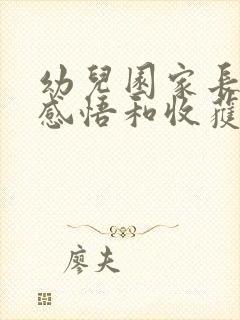 幼兒園家長
感悟和收獲
廖夫